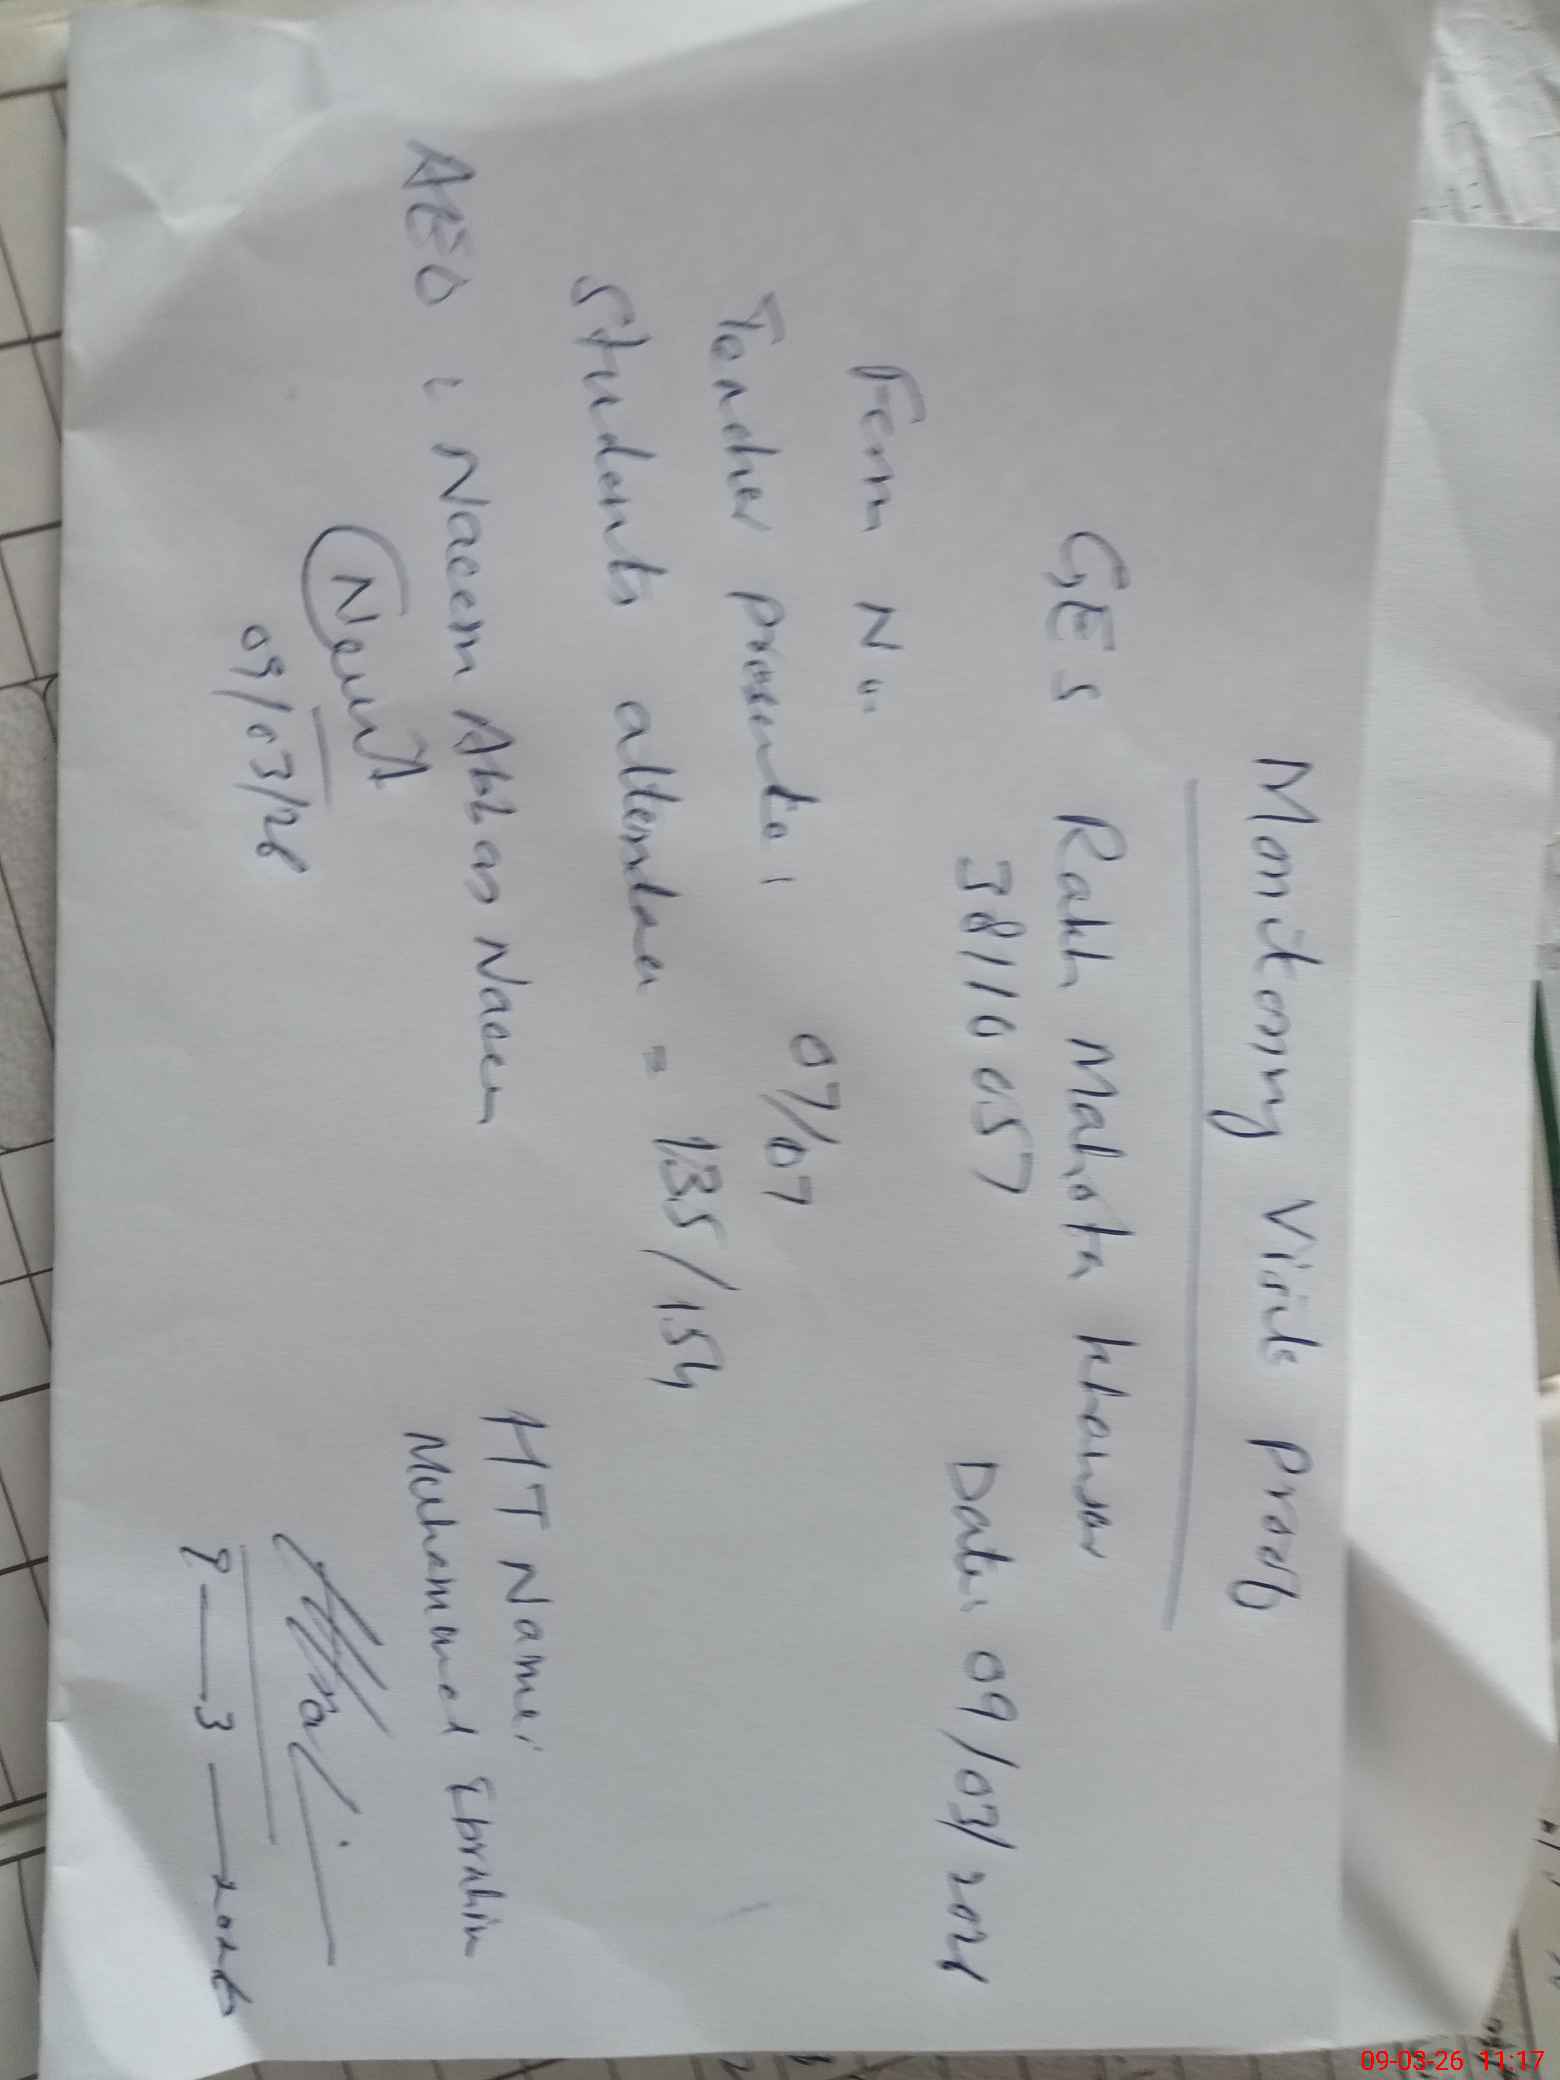 Monitorny Visit Proof
GES Rakh Mahota khansar
38110057 Date: 09/03/2026
Fem No:
Teacher presents: 07/07
Students attendace = 135/154
AEO: Naeem Abbas Naeem
HT Name:
Muhammad Ibrahim
09/03/26
9-3-2026
09-03-26 11:17